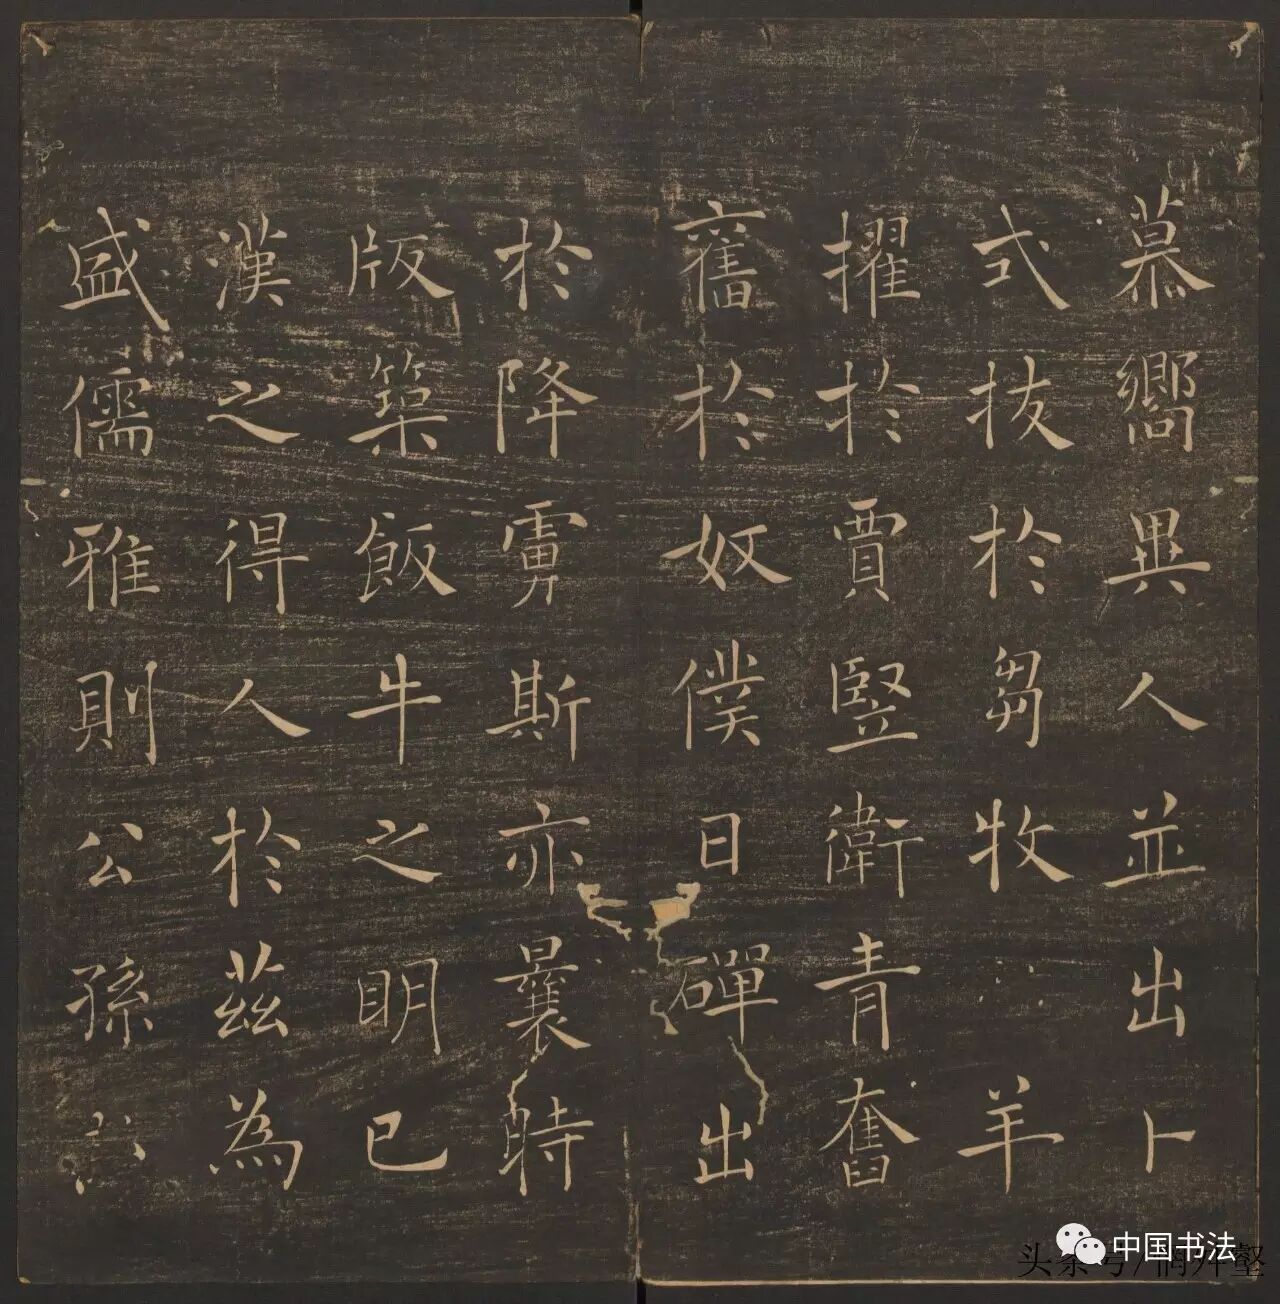 慕嚮異人並出卜
式拔於芻牧羊
擢於賈豎衛青奮
舊於奴僕日磾出
於降虜斯亦曩時
版築飯牛之明已
漢之得人於茲為
盛儒雅則公孫
中国书法
头条号/